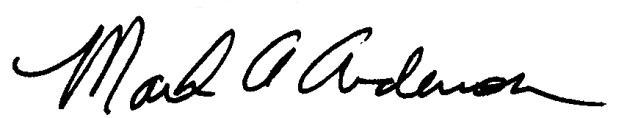 Mark A Anderson